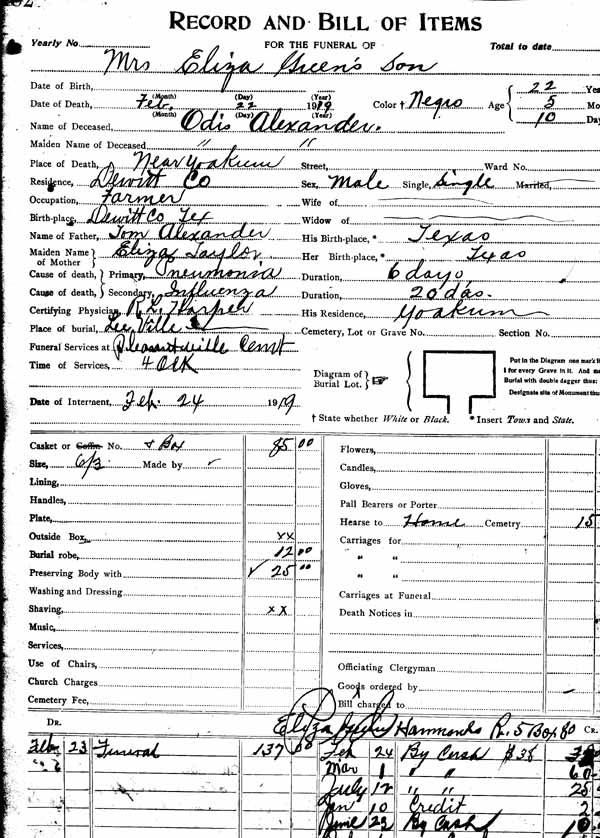 RECORD AND BILL OF ITEMS
Yearly No. FOR THE FUNERAL OF Total to date
Mrs Eliza Green's Son
Date of Birth, (Month) (Day) (Year) 22 Yea
Date of Death, Feb. (Month) 22 (Day) 1919 (Year) Color † Negro Age 5 Mo
Name of Deceased, Odis Alexander. 10 Day
Maiden Name of Deceased " "
Place of Death, Near Yoakum Street, Ward No.
Residence, Dewitt Co Sex, Male Single, Single Married,
Occupation, Farmer Wife of
Birth-place, Dewitt Co Tex Widow of
Name of Father, Tom Alexander His Birth-place, * Texas
Maiden Name of Mother Eliza Taylor Her Birth-place, * Texas
Cause of death, Primary, Pneumonia Duration, 6 days
Cause of death, Secondary, Influenza Duration, 20 das.
Certifying Physician, Harper His Residence, Yoakum
Place of burial, Lee Ville Cemetery, Lot or Grave No. Section No.
Funeral Services at Pleasantville Cemt
Time of Services, 4 Oclk
Diagram of Burial Lot.
Put in the Diagram one mark
for every Grave in it. And ma
Burial with double dagger thus:
Designate site of Monument thus
Date of Interment, Feb. 24 1919 † State whether White or Black. * Insert Town and State.
Casket or Coffin No. & Box 85 00
Size, 6/3 Made by
Lining,
Handles,
Plate,
Outside Box, xx
Burial robe, 12 00
Preserving Body with 25 00
Washing and Dressing
Shaving, xx
Music,
Services,
Use of Chairs,
Church Charges
Cemetery Fee,
Flowers,
Candles,
Gloves,
Pall Bearers or Porter
Hearse to Home Cemetry 15
Carriages for
" "
" "
Carriages at Funeral
Death Notices in
Officiating Clergyman
Goods ordered by
Bill charged to
DR. Eliza Hammonds R. 5 Box 80 CR.
Feb 23 Funeral 137 00 Feb 24 By Cash $38
Mar 1 " " 60
July 12 " " 25
Jan 10 Credit 2
June 23 By Cash 10